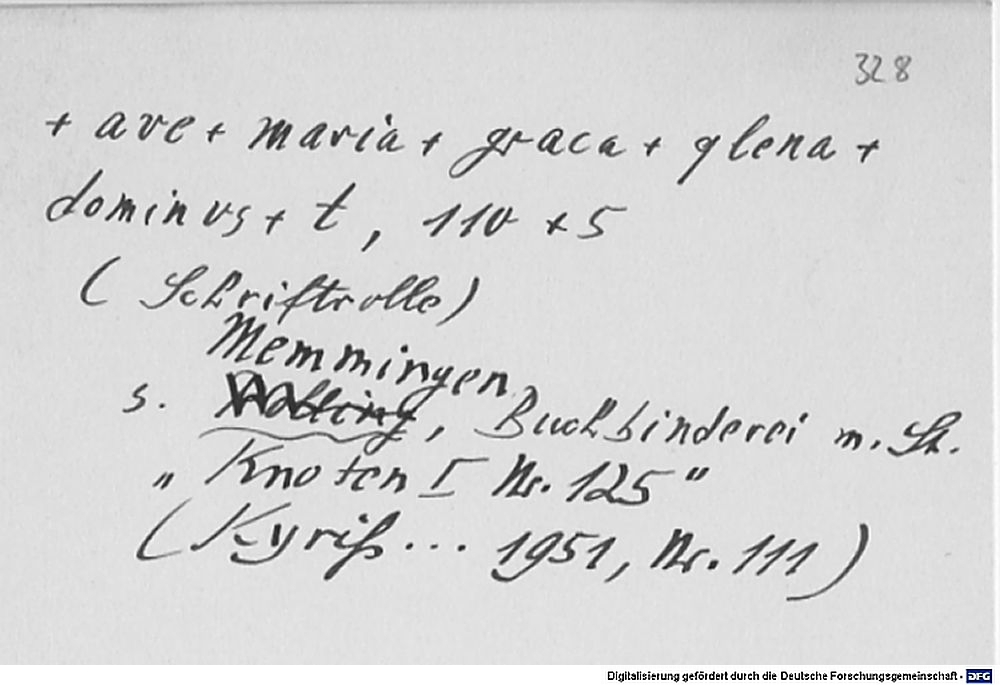 328
+ ave + maria + graca + qlena +
dominus + t, 110 x 5
(Schriftrolle)
Memmingen
s. , Buchbinderei m. St.
„Knoten I Nr. 125"
(Kyriß... 1951, Nr. 111)
Digitalisierung gefördert durch die Deutsche Forschungsgemeinschaft - DFG